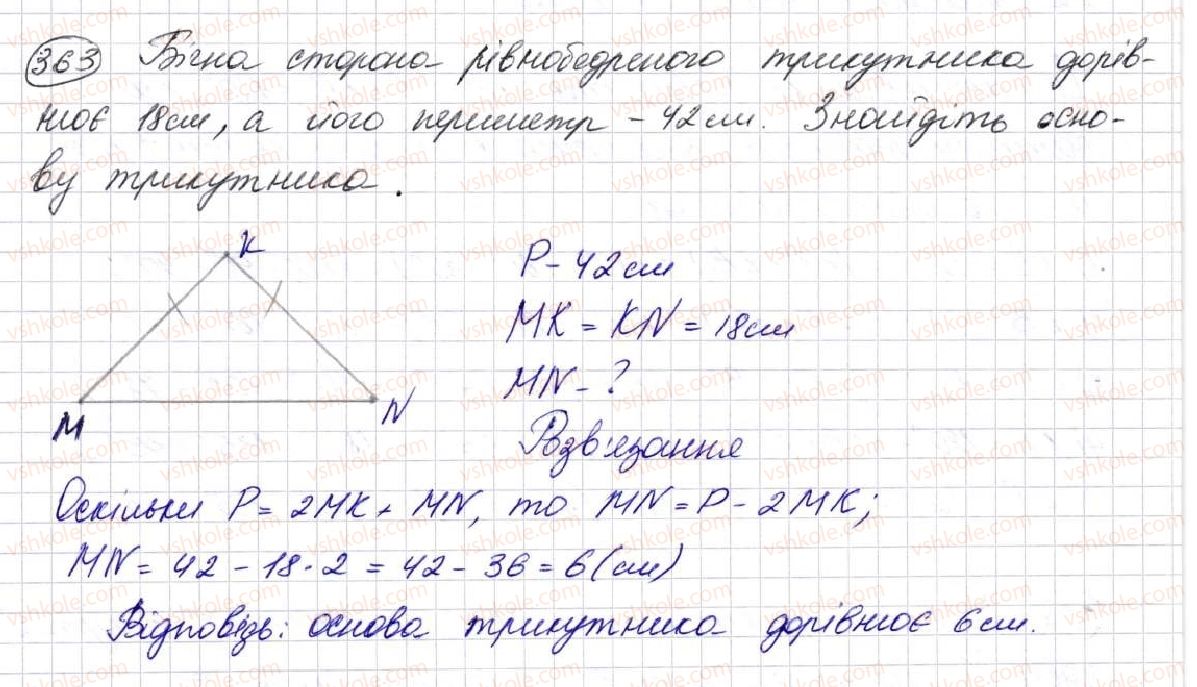 363 Бічна сторона рівнобедреного трикутника дорів-
нює 18см, а його периметр – 42см. Знайдіть осно-
ву трикутника.
K
M
N
P – 42см
MK = KN = 18см
MN – ?
Розв'язання
Оскільки P = 2MK + MN, то MN = P – 2MK;
MN = 42 – 18·2 = 42 – 36 = 6(см)
Відповідь: основа трикутника дорівнює 6см.
vshkole.com